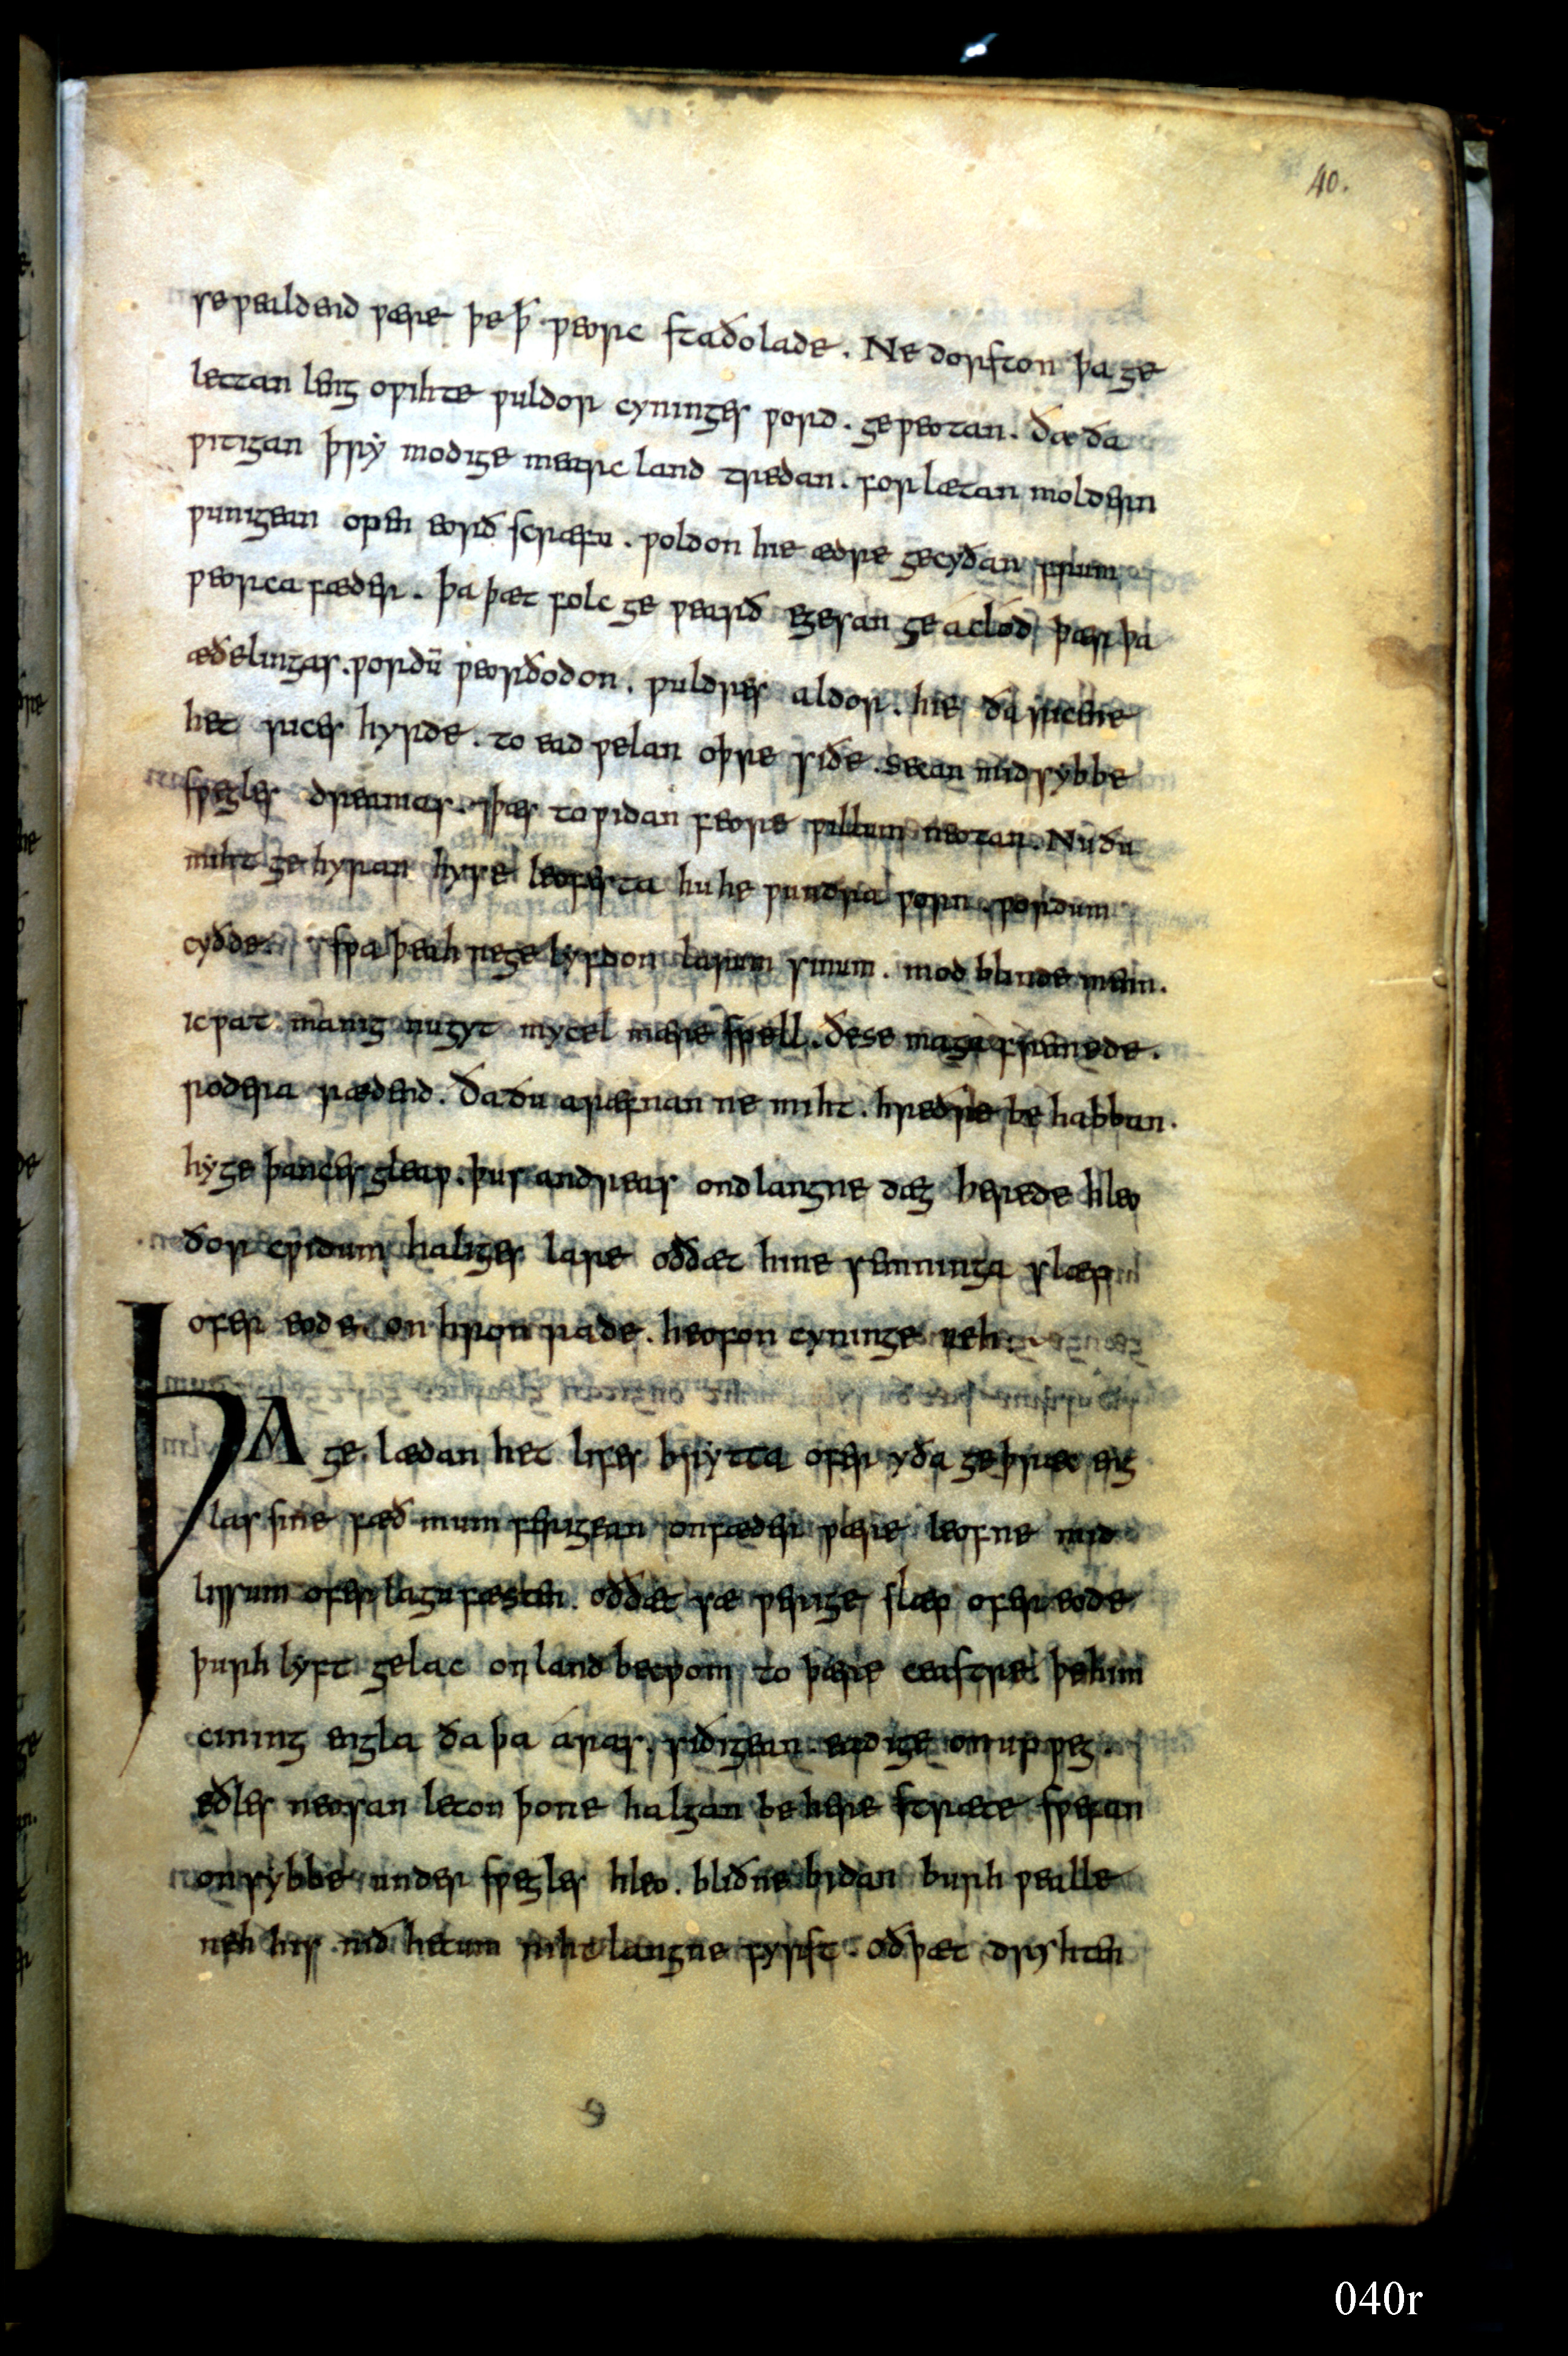 se ƿealdend ƿære þe ꝥ ƿeorc staðolade . Ne dorston þa ge
lettan leng oƿihte ƿuldor cyninges ƿord . geƿeotan . ðæ ða
ƿitigan þrẏ modige mearc land tredan . forlætan moldern
ƿunigean open eorð scræfu . ƿoldon hie ædre gecyðan frum
ƿeorca fæder . þa þæt folc ge ƿearð egesan ge áclod þær þa
æðelingas . ƿordū ƿeorðodon . ƿuldres aldor . hie ða ricene
het rices hyrde . to ead ƿelan oþre siðe . secan mid sybbe
sƿegles dreamas . ⁊ þæs to ƿidan feore ƿillum neotan . Nu ðu
miht ge hyran hyse leofesta hu he ƿundra ƿorn ƿordum
cyðde . sƿa þeah ne ge lyfdon larum sinum . mod blinde menn .
ic ƿat manig nu gyt mycel mære spell . ðe se maga fremede .
rodera rædend . ða ðu aræfnan ne miht . hreðre be habban .
hẏge þances gleaƿ . þus andreas ondlangne dæg herede hleo
ðor cƿidum haliges lare oððæt hine semninga slæp
ofer eode on hron rade . heofon cyninge neh :~
ÞA ge lædan het lifes brẏtta ofer yða geþræc eng
las sine fæð mum ferigean on fæder ƿære leofne mid
lissum ofer lagu fæsten . oððæt sæ ƿerige slæp ofer eode
þurh lẏft gelac on land becƿom to þære ceastre þe him
cining engla ða þa áras . siðigean . eadige on up ƿeg .
eðles neosan leton þone halgan be here stræte sƿefan
on sybbe under sƿegles hleo . bliðne bidan burh ƿealle
neh his nið hetum niht langne fyrst . oð þæt dryhten